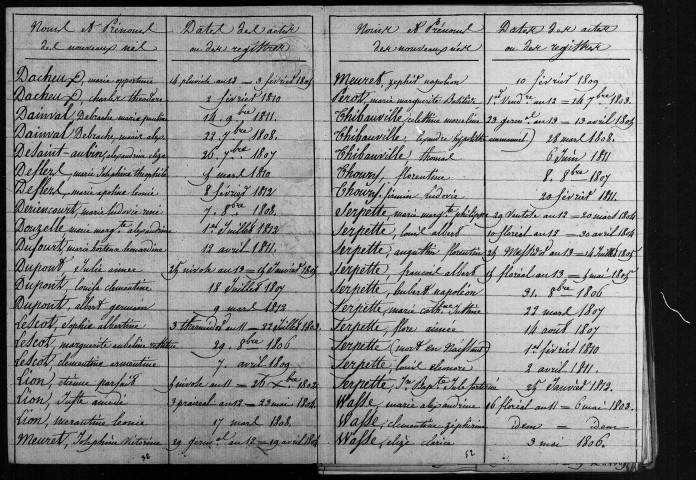 Noms et Prénoms des nouveaux nés
Dates des actes ou des registres
Dacheux, marie opportune 14 pluviose an 13 = 3 février 1805
Dacheux, charles théodore 2 février 1810
Dainval, Debrache, marie 14. 9bre 1811.
Dainval Debrache, marie 22. 7bre 1808.
DeSaint-aubin, alexandrine elize 26. 7bre 1807
Deflers, marie Josephine théophile 4 mars 1810
Deflers, marie apoline leonie 8 février 1812
Deriencourt, marie ludovic rené 7. 8bre 1808.
Douzelle marie margte alexandrine 1er Juillet 1812
Dufourt, marie hortense 12 avril 1811.
Dupont, Julie aimée 25 nivose an 13 = 15 Janvier 1805
Dupont, louise clementine 18 Juillet 1807
Dupont, albert germain 9 mars 1812
Lescot, Sophie albertine 3 thermidor an 11 = 22 Juillet 1803
Lescot, marguerite 29. 8bre 1806
Lescot, clementine armentine 7. avril 1809
Lion, étienne parfait 5 nivose an 11 = 26 Xbre 1802
Lion, Juste amedé 3 prairial an 12 = 23 mai 1804.
Lion, leonie 17 mars 1808.
Meuret, Josephine Victorine 29 germal an 12 = 19 avril 1804
Noms et Prénoms des nouveaux nés
Dates des actes ou des registres
Meuret, zephir napoleon 10 février 1809
Perot, marie marguerite 1er Vendre an 12 = 24 7bre 1803.
Thibauville, celestine 23 germal an 13 = 13 avril 1805
Thibauville, hypolitte 28 mars 1808.
Thibauville, thomas 6 Juin 1811
Thoury, florentine 8. 8bre 1807
Thoury, firmin ludovic 20 février 1811.
Serpette, marie margte philippe 29 Ventose an 12 = 20 mars 1804
Serpette, louis albert 10 floréal an 12 = 30 avril 1804
Serpette, augustin florentin 25 Messidor an 13 = 14 Juillet 1805
Serpette, francois albert 14 floréal an 13 = 4 mai 1805
Serpette, hubert napoléon 31. 8bre = 1806
Serpette, marie cathne Justine 22 mars 1807
Serpette, flore aimée 14 août 1807
Serpette (mort en Naissant) 1er février 1810
Serpette, louis eleonore 2 avril 1811.
Serpette, Jn Bapte 25 Janvier 1812.
Wasse, marie alexandrine 16 floréal an 11 = 6 mai 1803.
Wasse, clementine zephirine idem = idem
Wasse, elize clarice 3 mai 1806.
52